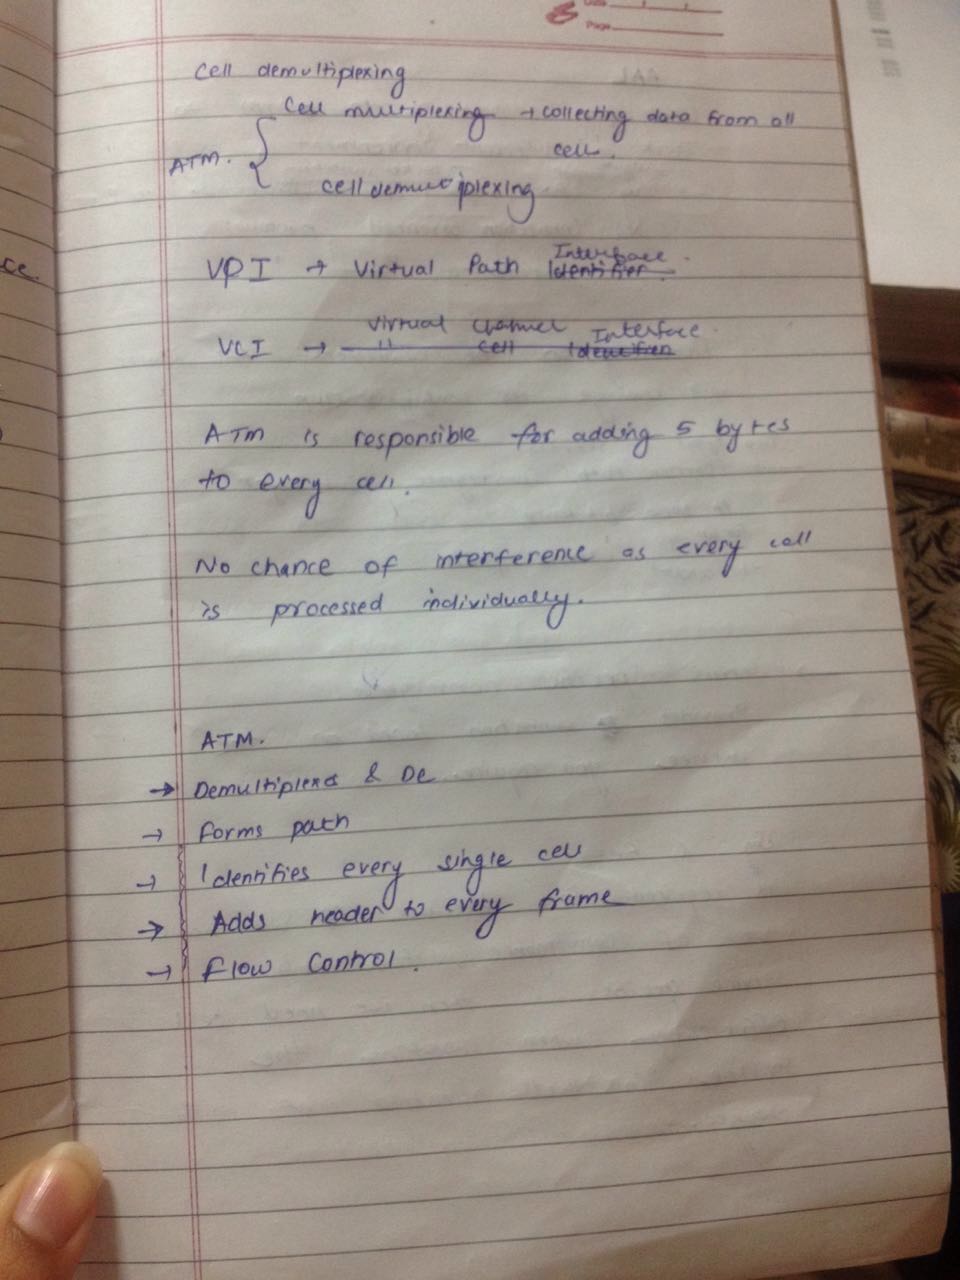 Date
Page
Cell demultiplexing
Cell multiplexing → collecting data from all
cell.
ATM.
cell demultiplexing
Interface.
VPI → Virtual Path Identifier.
Virtual Channel Interface.
VCI → " cell Identifier
ATM is responsible for adding 5 bytes
to every cell.
No chance of interference as every cell
is processed individually.
ATM.
→ Demultiplexes & De
→ forms path
→ Identifies every single cell
→ Adds header to every frame
→ Flow Control.